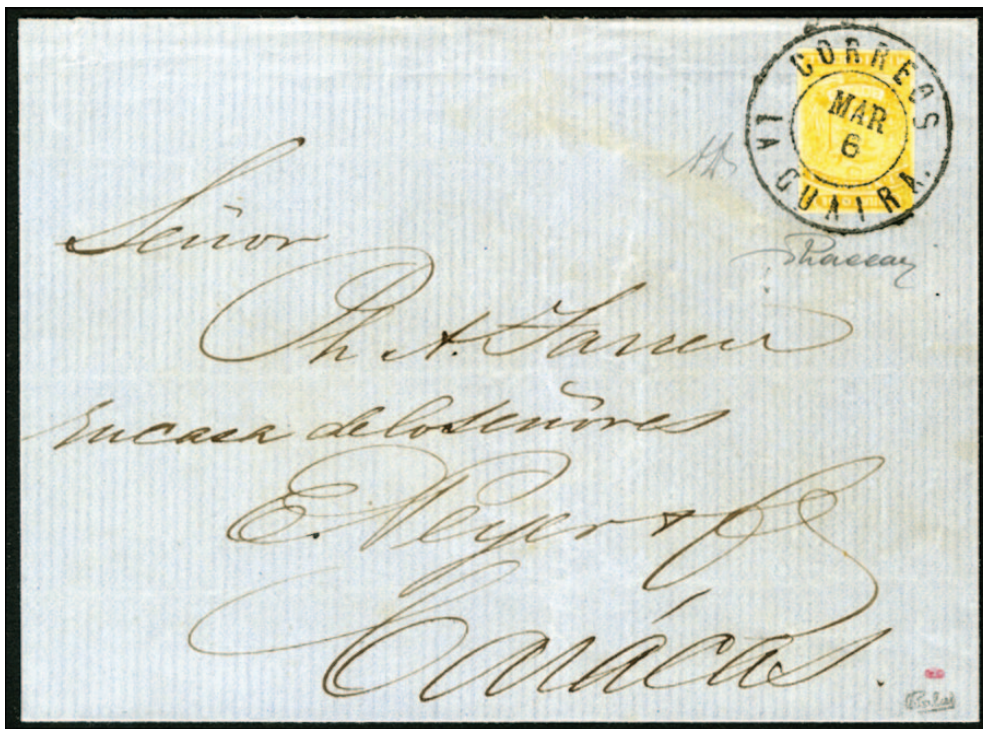 CORREOS
MAR
6
LA GUAIRA.
Señor
Ph A.
En casa de los señores
E. Meyer & Co
Carácas.